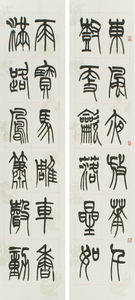 東風夜放華千
樹更龡落星如
雨寶馬雕車香
滿路鳳簫聲動